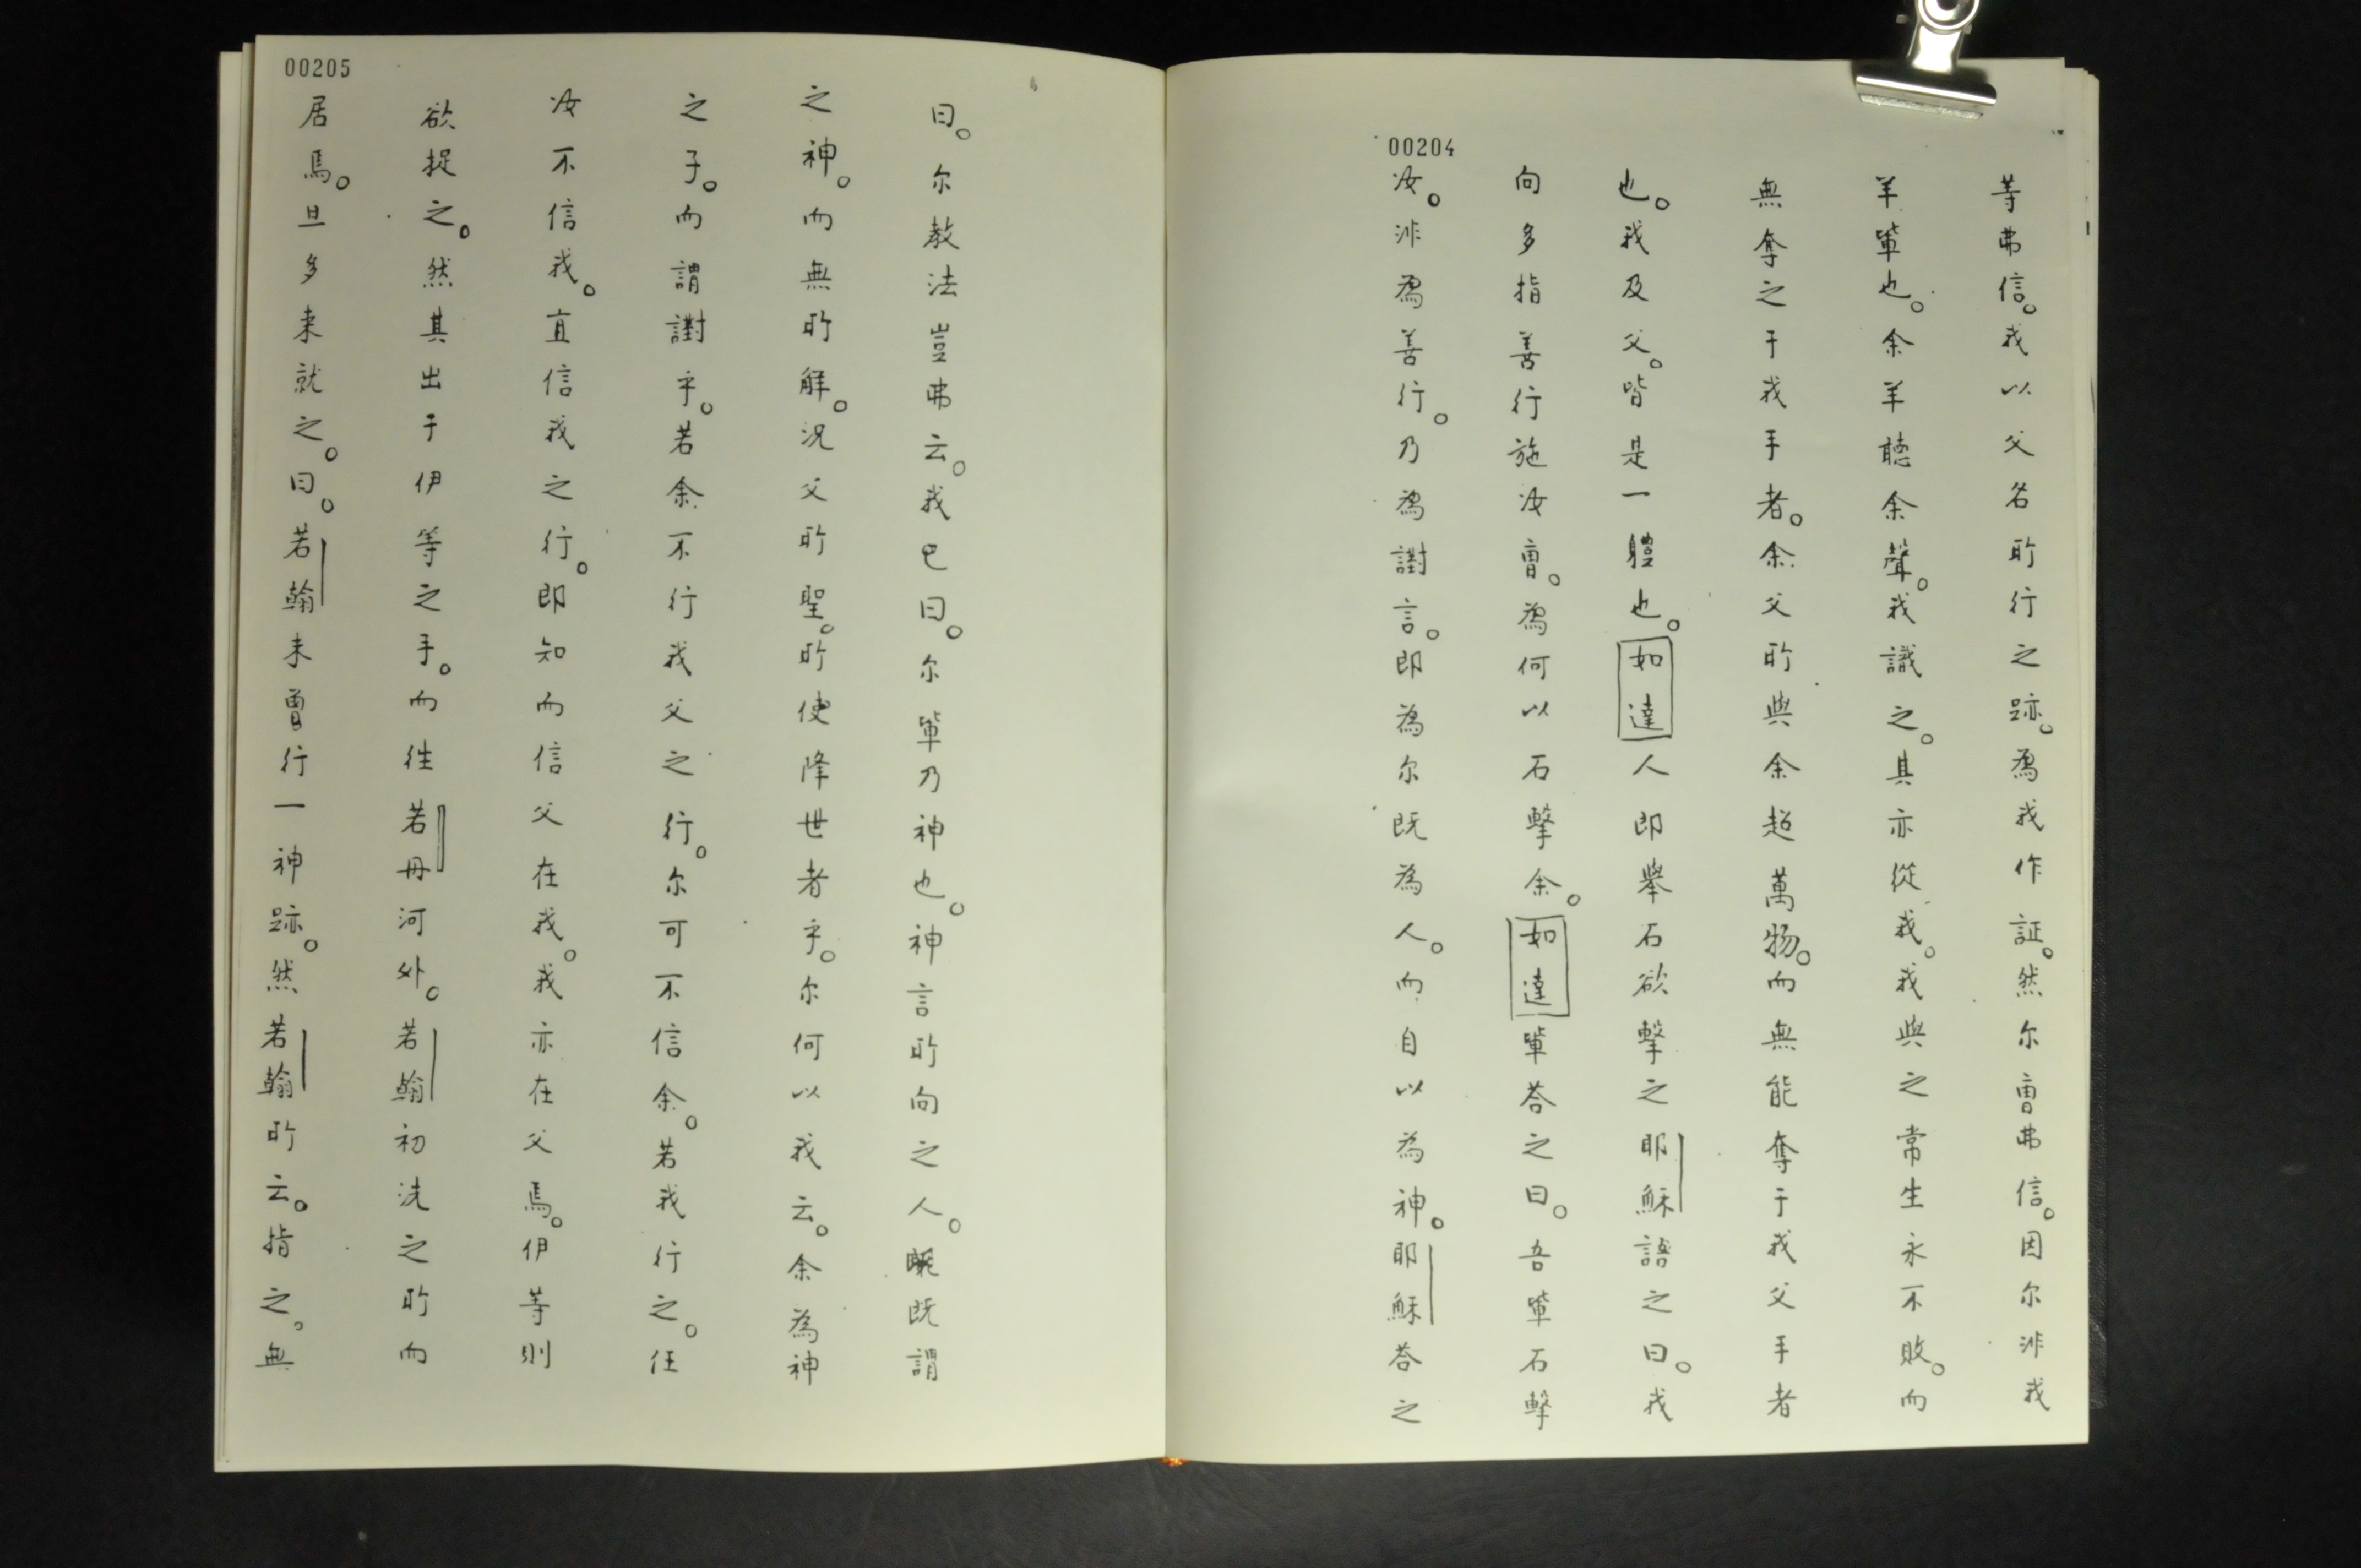 00204
等弗信。我以父名所行之跡。為我作証。然尔曹弗信。因尔非我
羊輩也。余羊聽余聲。我識之。其亦從我。我與之常生永不敗。而
無奪之于我手者。余父所與余超萬物。而無能奪于我父手者
也。我及父。皆是一軆也。如達人即舉石欲擊之耶穌語之曰。我
向多指善行施汝曹。為何以石擊余。如達輩荅之曰。吾輩石擊
汝。非為善行。乃為譵言。即為尔既為人。而自以為神。耶穌荅之
00205
曰。尔教法豈弗云。我已曰。尔輩乃神也。神言所向之人。既謂
之神。而無所解。況父所聖。所使降世者乎。尔何以我云。余為神
之子。而謂譵乎。若余不行我父之行。尔可不信余。若我行之。任
汝不信我。直信我之行。即知而信父在我。我亦在父焉。伊等則
欲捉之。然其出于伊等之手。而徃若丹河外。若翰初洗之所而
居焉。旦多来就之。曰。若翰未曾行一神跡。然若翰所云。指之。無